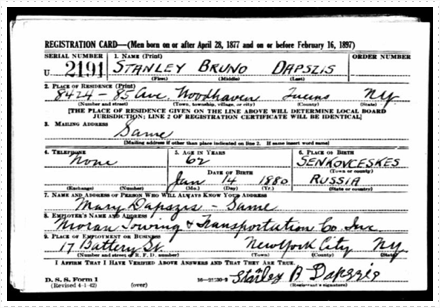 REGISTRATION CARD—(Men born on or after April 28, 1877 and on or before February 16, 1897)
SERIAL NUMBER 1. NAME (Print) ORDER NUMBER
U 2191 STANLEY BRUNO DAPSZIS
(First) (Middle) (Last)
2. PLACE OF RESIDENCE (Print)
8424 - 85 Ave. Woodhaven Queens NY
(Number and street) (Town, township, village, or city) (County) (State)
[THE PLACE OF RESIDENCE GIVEN ON THE LINE ABOVE WILL DETERMINE LOCAL BOARD
JURISDICTION; LINE 2 OF REGISTRATION CERTIFICATE WILL BE IDENTICAL]
3. MAILING ADDRESS
Same
[Mailing address if other than place indicated on line 2. If same insert word same]
4. TELEPHONE 5. AGE IN YEARS 6. PLACE OF BIRTH
None 62 SENKOVCESKES
DATE OF BIRTH (Town or county)
Jan 14 1880 RUSSIA
(Exchange) (Number) (Mo.) (Day) (Yr.) (State or country)
7. NAME AND ADDRESS OF PERSON WHO WILL ALWAYS KNOW YOUR ADDRESS
Mary Dapszis - Same
8. EMPLOYER'S NAME AND ADDRESS
Moran Towing & Transportation Co. Inc.
9. PLACE OF EMPLOYMENT OR BUSINESS
17 Battery St. New York City NY
(Number and street or R. F. D. number) (Town) (County) (State)
I AFFIRM THAT I HAVE VERIFIED ABOVE ANSWERS AND THAT THEY ARE TRUE.
D. S. S. Form 1
(Revised 4-1-42) (over) Stanley B Dapszis
(Registrant's signature)